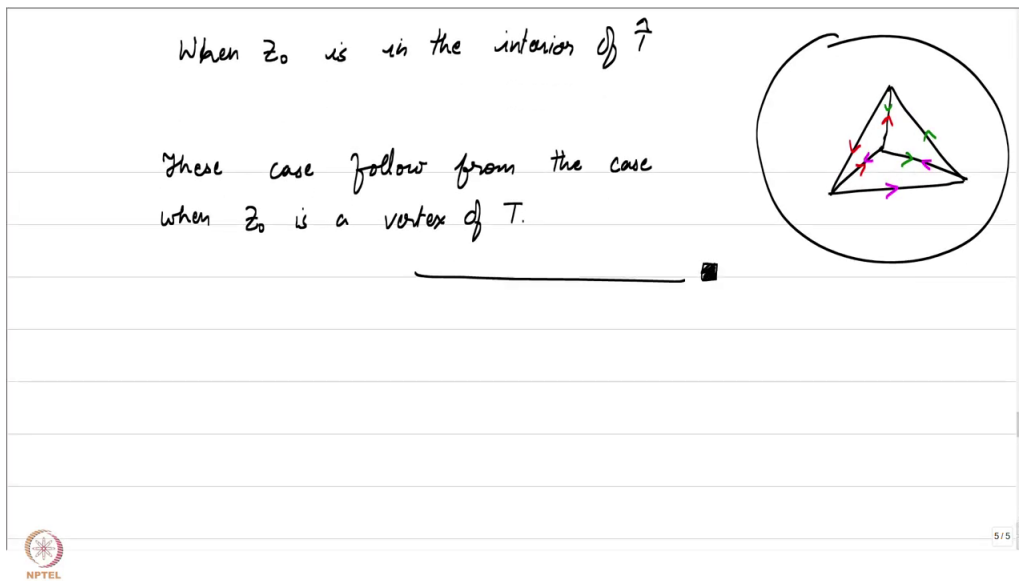 When z₀ is in the interior of T̂
These case follow from the case
when z₀ is a vertex of T.
5 / 5
NPTEL